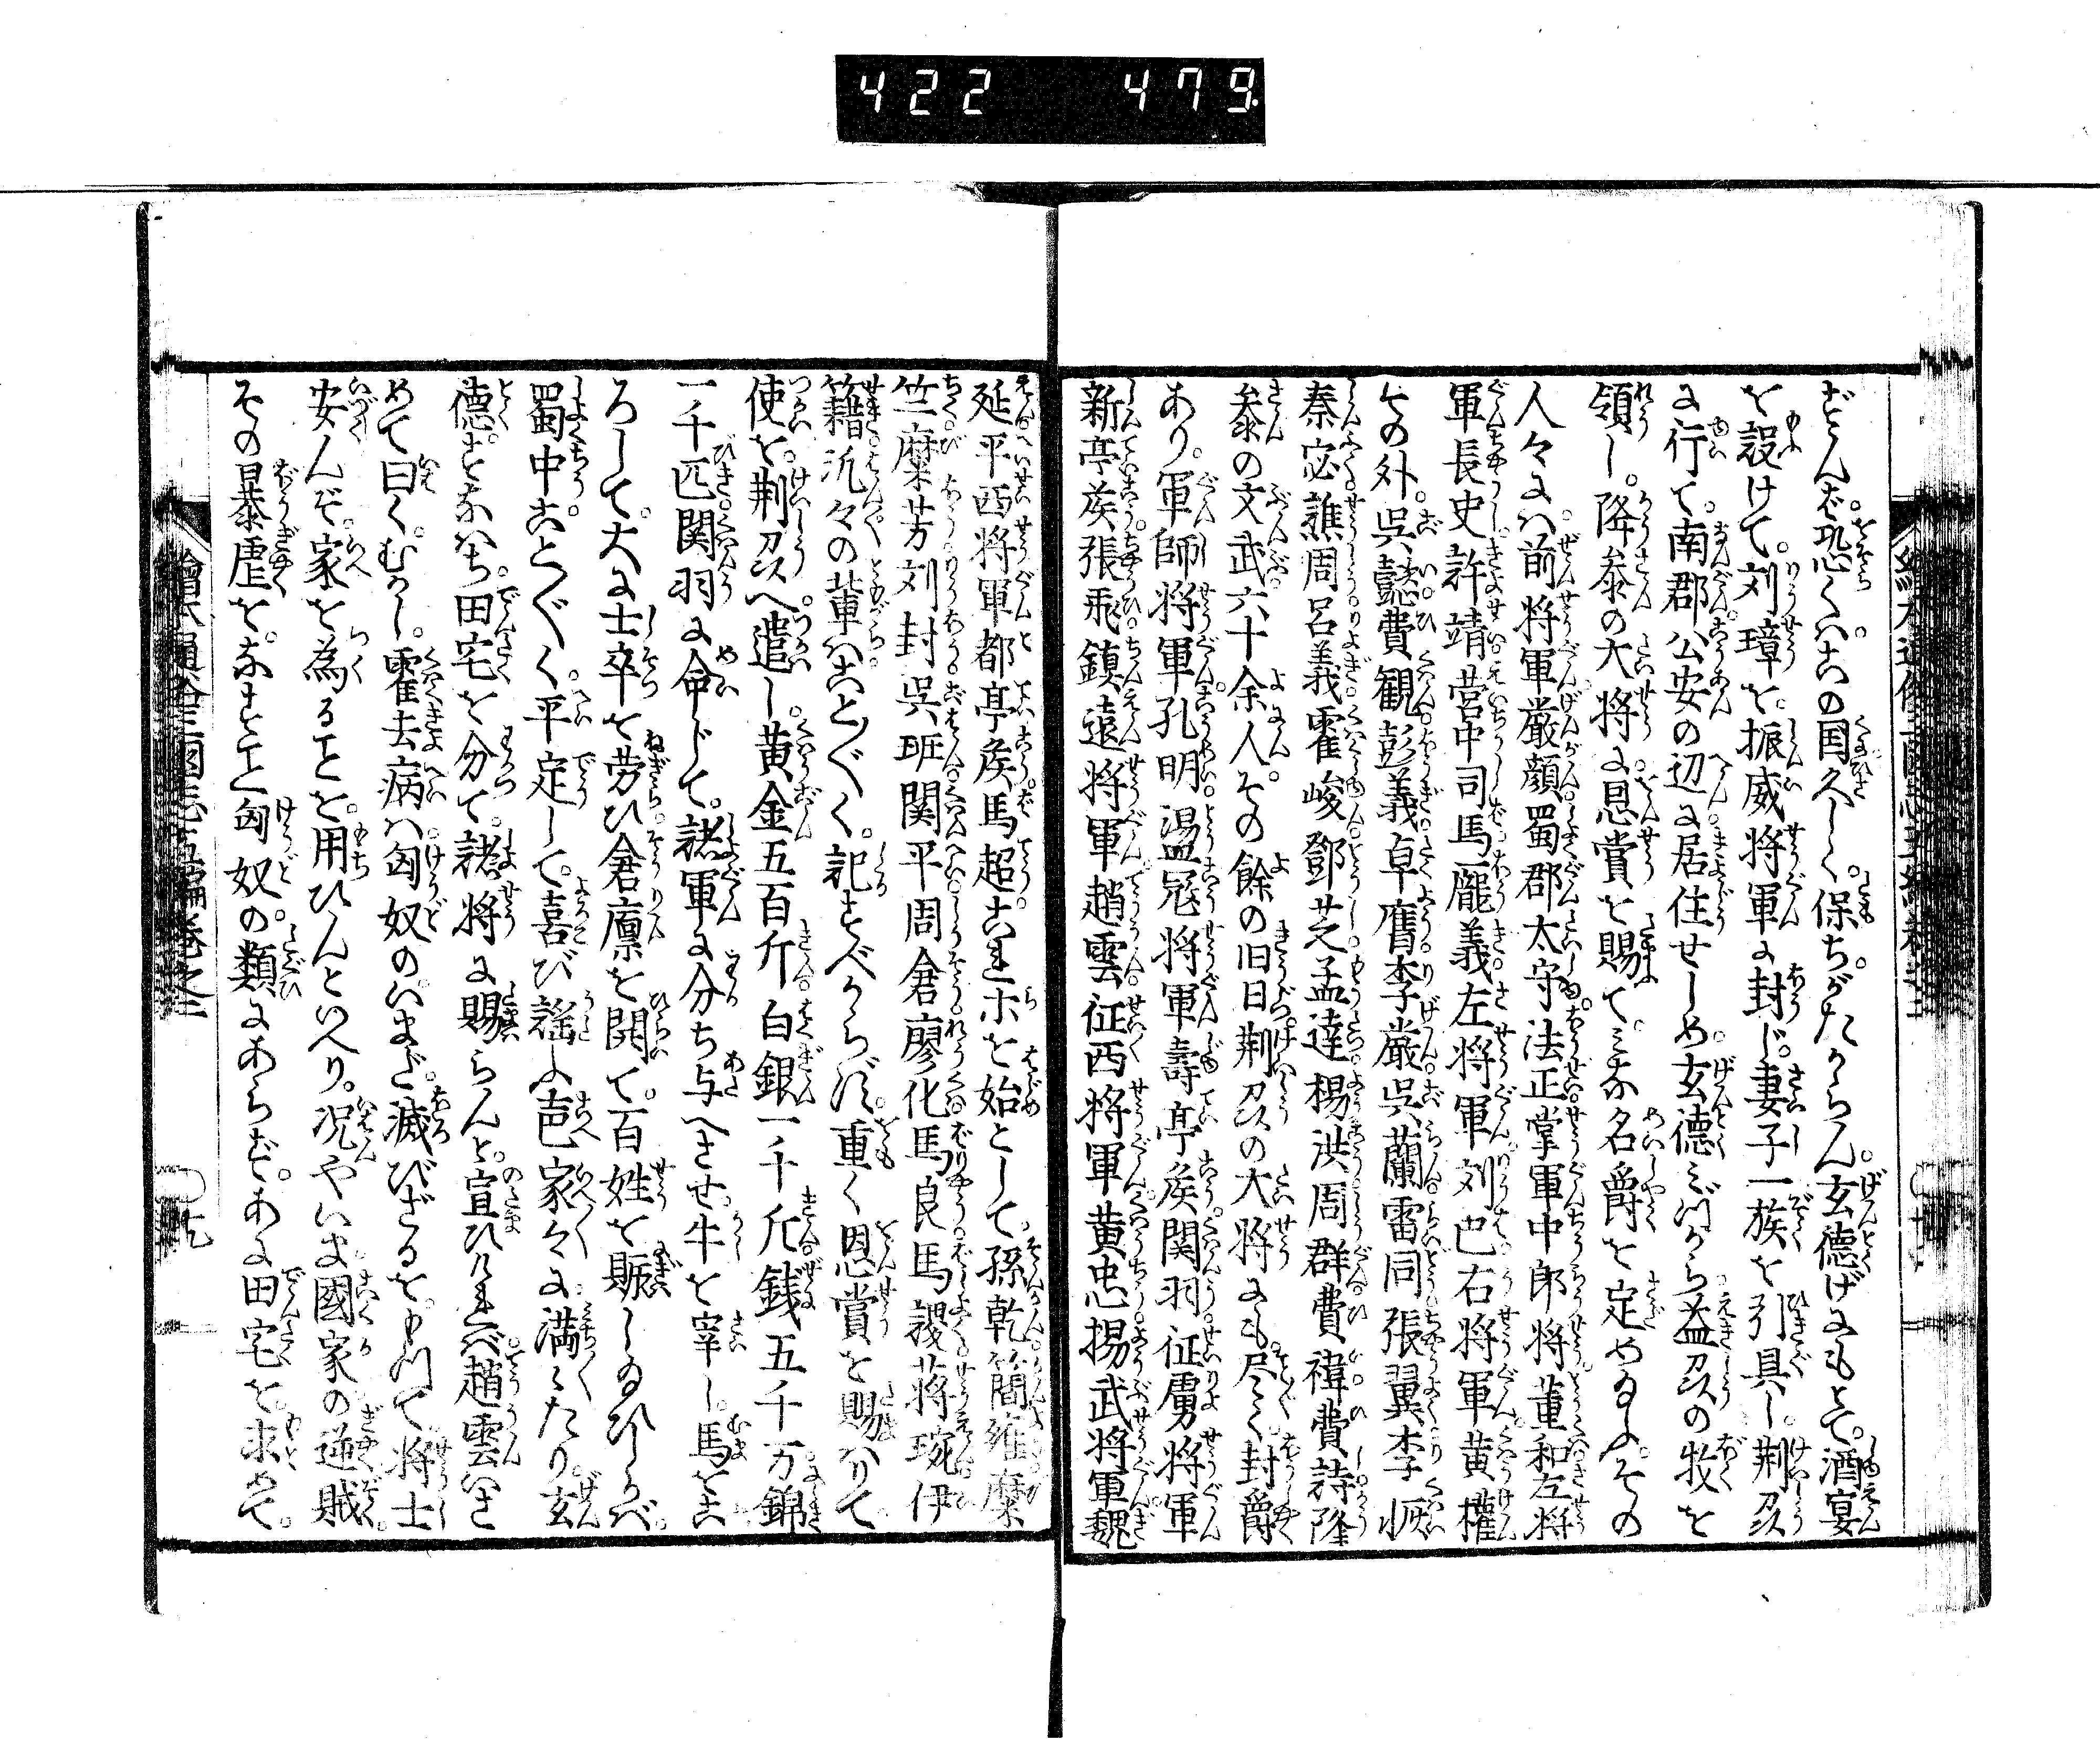 422 479
ざんば。恐くハ。この国久しく。保ちがたからん。玄徳げにもとて。酒宴
を設けて。刘璋を。振威将軍に封じ。妻子一族を引具し。荆州
に行て。南郡公安の辺に居住せしめ。玄徳ミづから益州の牧を
領し。降叅の大将に恩賞を賜て。ミな名爵を定めらる。その
人々にハ前将軍嚴顔蜀郡太守法正掌軍中郎将董和左将
軍長史許靖営中司馬龐義左将軍刘巴右将軍黄權
その外。呉懿費観彭義卓膺李嚴呉蘭雷同張翼李恢
秦宓譙周呂義霍峻鄧芝孟達楊洪周群費禕費詩等
叅の文武六十余人。その餘の旧日荆州の大将にも。尽く。封爵
あり。軍師将軍孔明盪冦将軍壽亭侯関羽征虜将軍
新亭侯張飛鎮遠将軍趙雲征西将軍黄忠揚武将軍魏
延平西将軍都亭侯馬超これホを始として。孫乾簡雍糜
竺糜芳刘封呉班関平周倉廖化馬良馬謖蒋琬伊
籍汎々の輩ハことぐく。記すべからず。重く恩賞を賜ハりて。
使を。荆州へ遣し。黄金五百斤白銀一千斤銭五千万錦
一千匹関羽に命じて。諸軍に分ち与へさせ牛を宰し。馬をこ
ろして。大に士卒を労ひ倉廪を開て。百姓を賑しゐひしかバ。
蜀中ことぐく。平定して。喜び謡ふ声家々に満々たり。玄
徳。すなハち田宅を分て。諸将に賜らんと。宣ひけれバ趙雲いさ
めて曰く。むかし。霍去病ハ匈奴のいまだ。滅びざるを。もつて将士
安んぞ。家を為ることを。用ひんといへり。况やいま國家の逆賊
その暴虐を。なすこと匈奴の。類にあらず。あに田宅を。求めて。